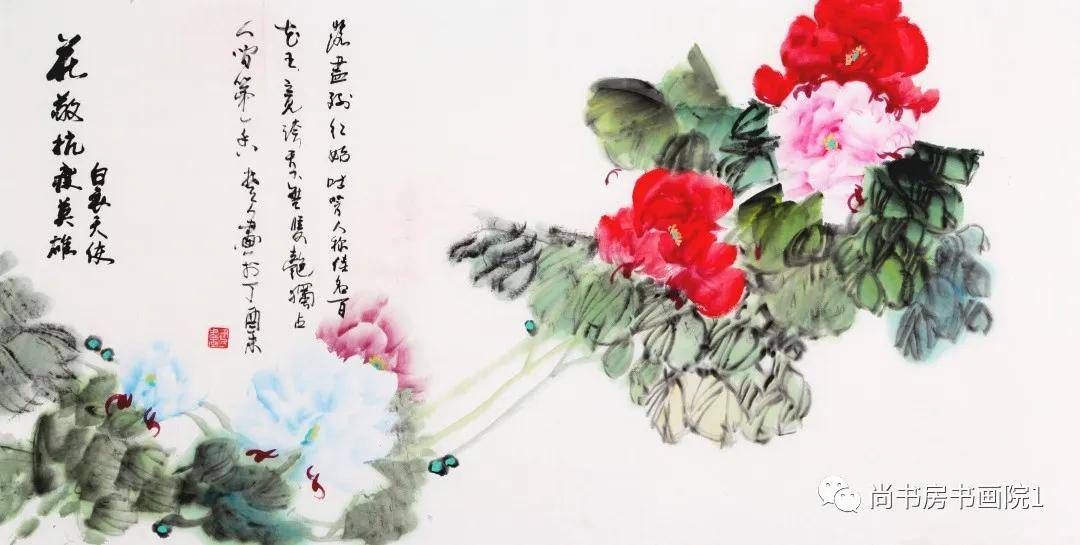 落尽残红始吐芳人称佳名百
花王竞夸天下无双艳独占
人间第一香
画於丁酉末
花敬抗疫英雄
白衣天使
尚书房书画院1